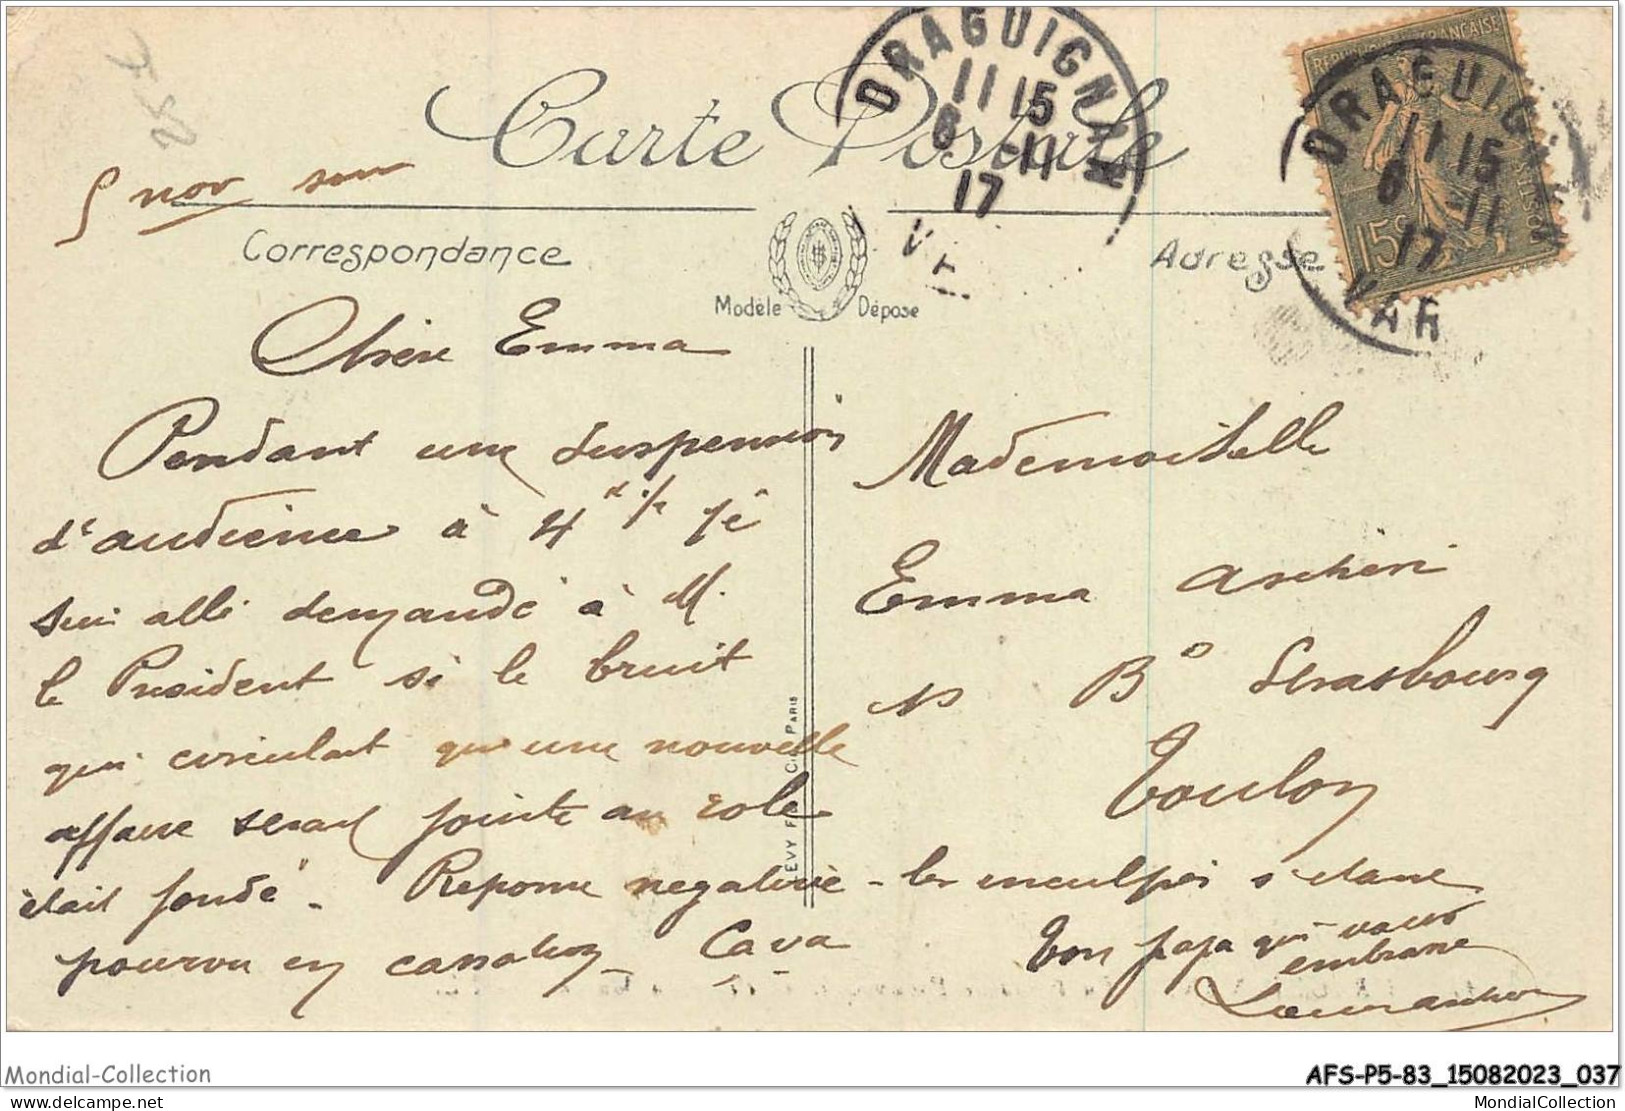 5 nov soir
Carte Postale
DRAGUIGNAN
11 15
6 -11
17
VAR
REPUBLIQUE FRANÇAISE
POSTES
15c
DRAGUIGNAN
11 15
6 -11
17
VAR
Correspondance
Adresse
Modèle Déposé
Chère Emma
Pendant une suspension
d'audience à 4 je
suis allé demandé à M.
le Président si le bruit
qui circulait qu'une nouvelle
affaire serait jointe au role
était fondé. Reponse negative - les inculpés s'etant
pourvu en cassation. Cava
Ton papa qui vous
embrasse
Mademoiselle
Emma Ascheri
Bd Strasbourg
Toulon
LEVY FILS & Cie PARIS
Mondial-Collection
AFS-P5-83_15082023_037
delcampe.net
MondialCollection